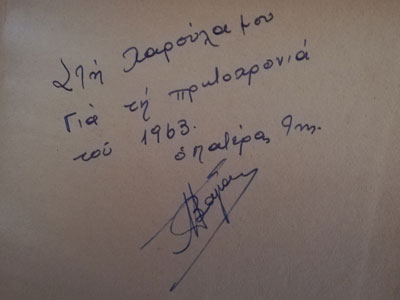 Στή Χαρούλα μου
Γιά τή πρωτοχρονιά
τού 1963.
ὁ πατέρας της.